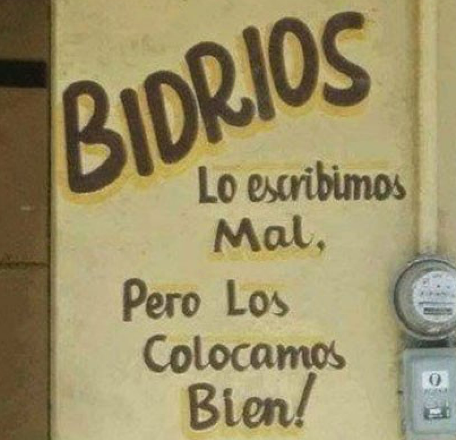 BIDRIOS
Lo escribimos
Mal,
Pero Los
Colocamos
Bien!